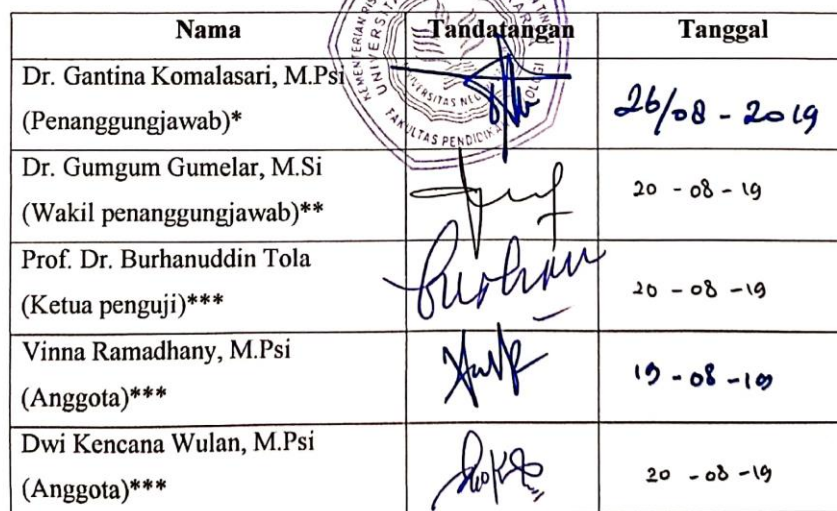 Nama Tandatangan Tanggal
Dr. Gantina Komalasari, M.Psi
(Penanggungjawab)* 26/08 - 2019
Dr. Gumgum Gumelar, M.Si
(Wakil penanggungjawab)** 20 - 08 - 19
Prof. Dr. Burhanuddin Tola
(Ketua penguji)*** 20 - 08 - 19
Vinna Ramadhany, M.Psi
(Anggota)*** 19 - 08 - 19
Dwi Kencana Wulan, M.Psi
(Anggota)*** 20 - 08 - 19